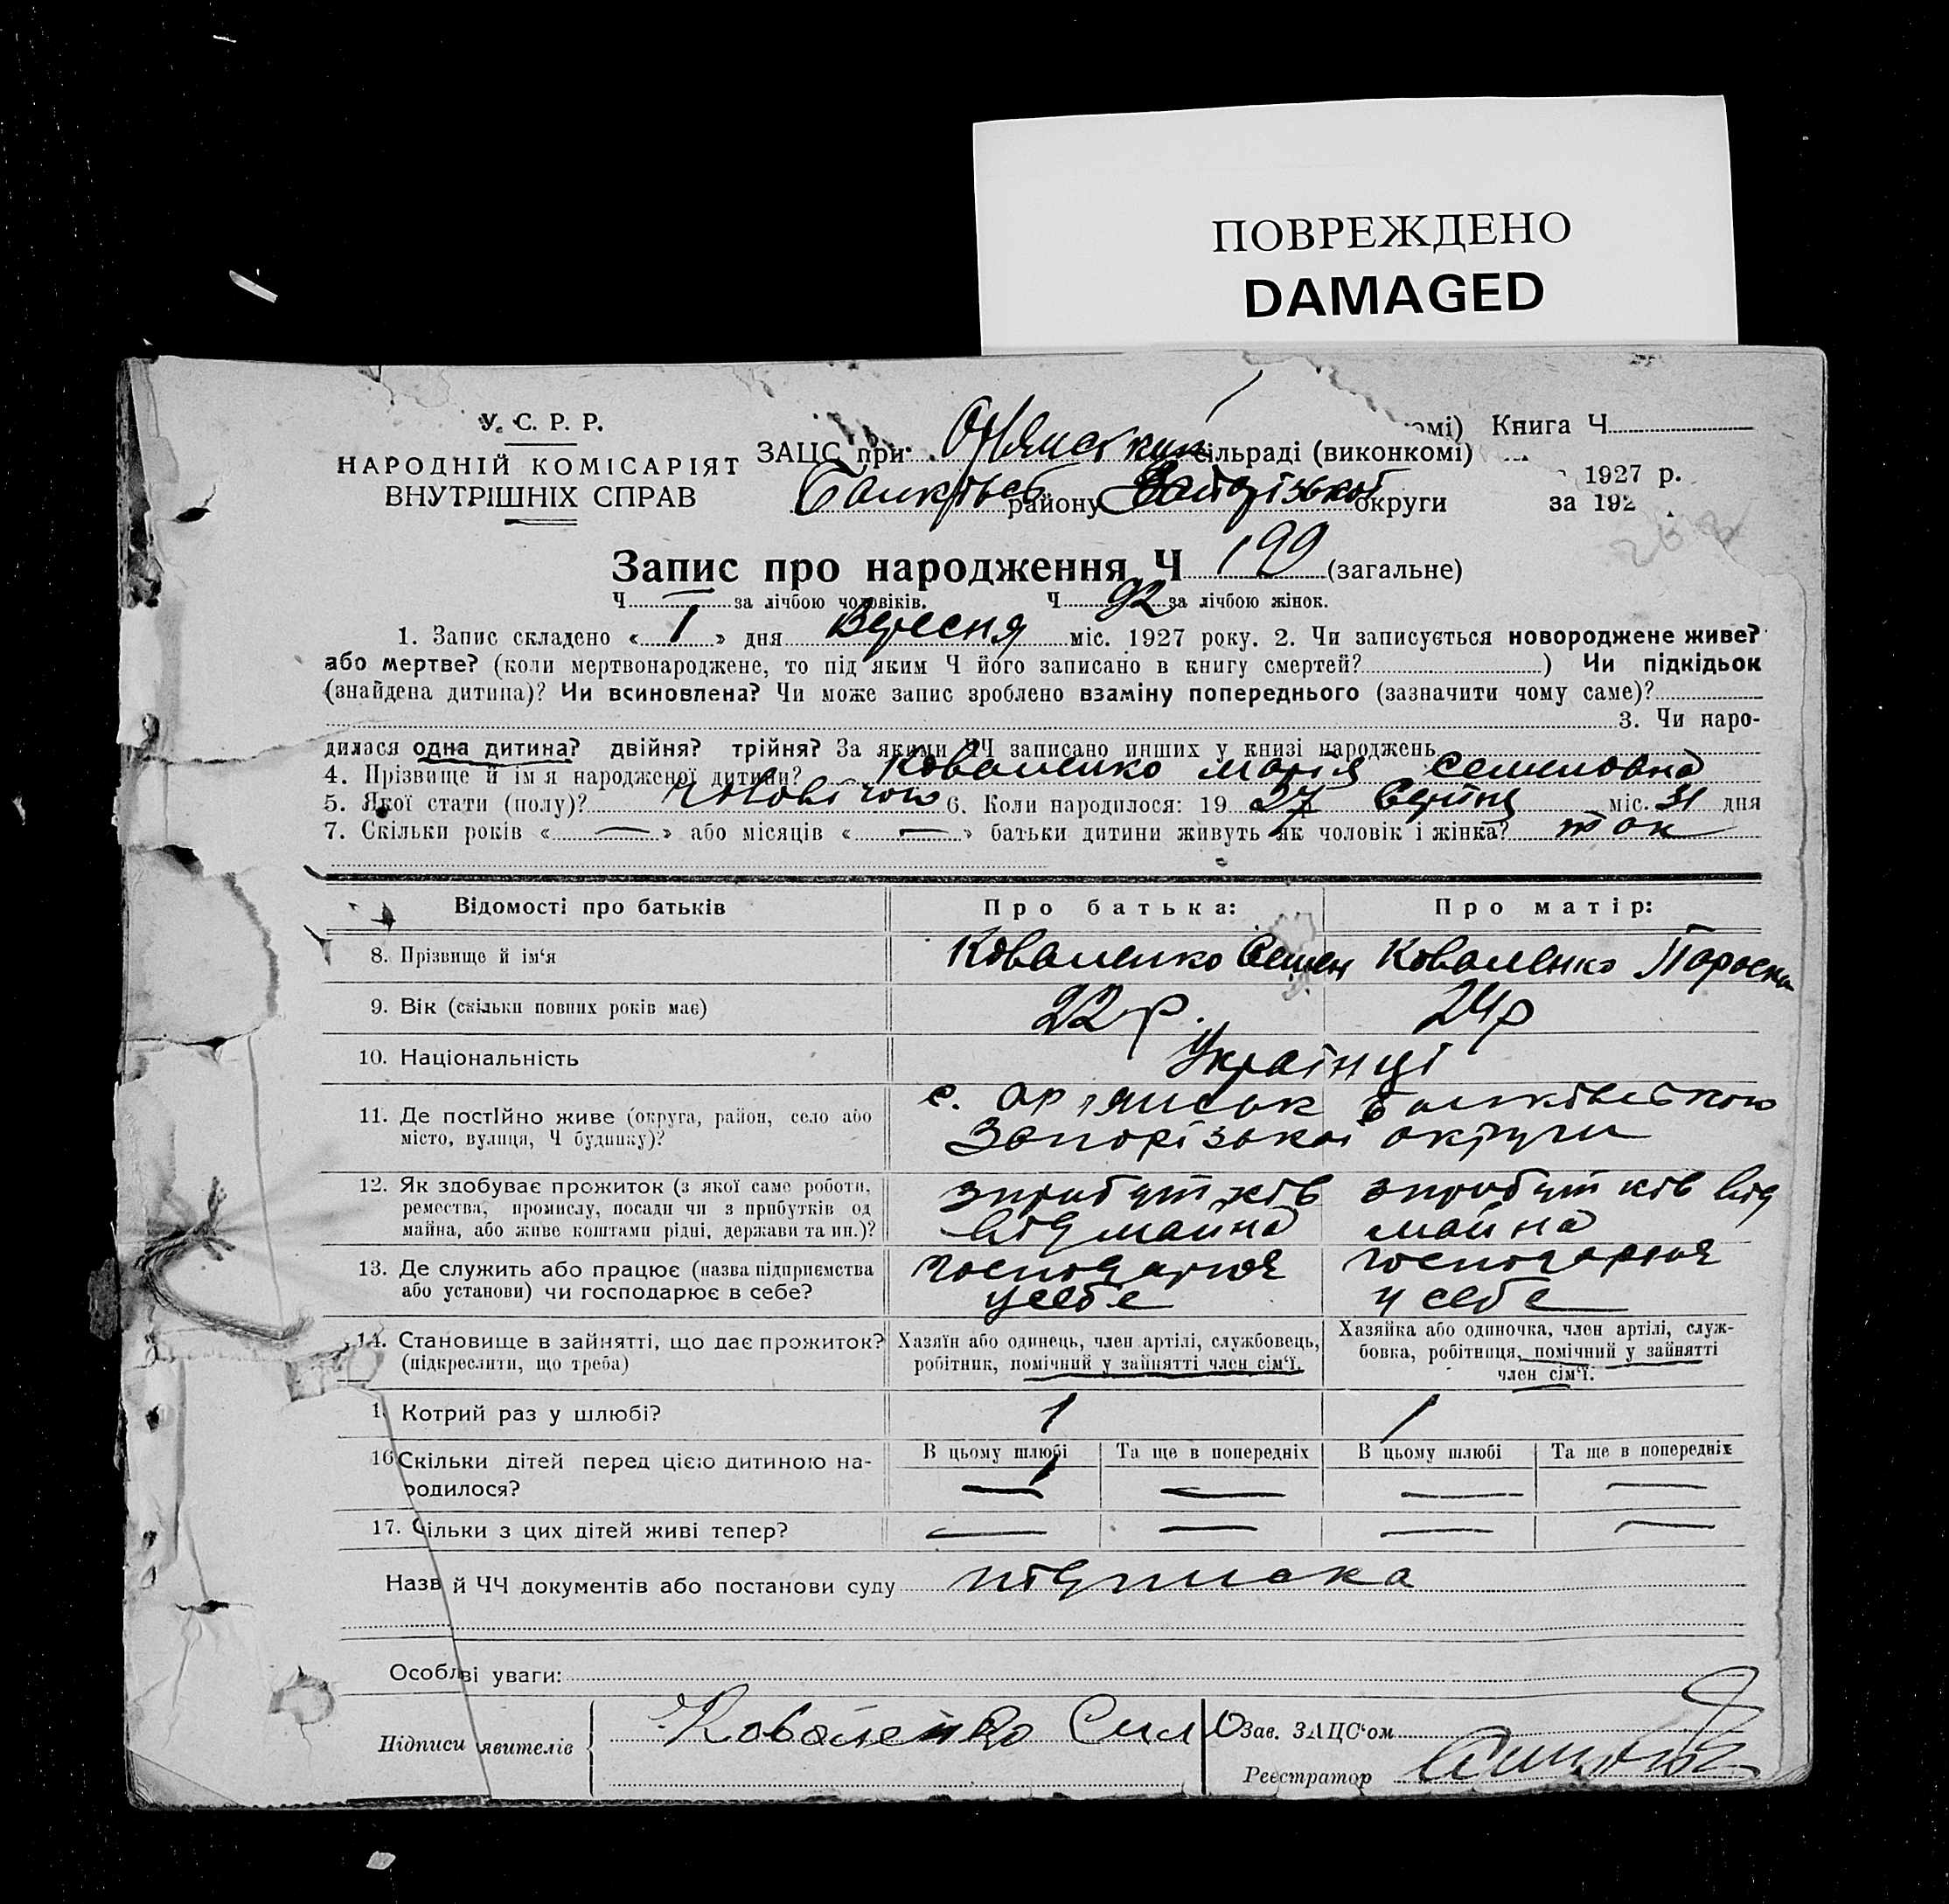 ПОВРЕЖДЕНО
DAMAGED
У. С. Р. Р.
НАРОДНІЙ КОМІСАРІЯТ
ВНУТРІШНІХ СПРАВ
омі) Книга Ч
ЗАЦС при сільраді (виконкомі)
1927 р.
району Запорізької округи за 192
Запис про народження Ч 199 (загальне)
Ч — за лічбою чоловіків. Ч 92 за лічбою жінок.
1. Запис складено « 1 » дня Вересня міс. 1927 року. 2. Чи записується новороджене живе?
або мертве? (коли мертвонароджене, то під яким Ч його записано в книгу смертей? ) Чи підкідьок
(знайдена дитина)? Чи всиновлена? Чи може запис зроблено взаміну попереднього (зазначити чому саме)?
3. Чи наро-
дилася одна дитина? двійня? трійня? За якими ЧЧ записано инших у книзі народжень
4. Прізвище й ім'я народженої дитини? Коваленко Марія Семеновна
5. Якої стати (полу)? 6. Коли народилося: 19 27 Серпня міс. 31 дня
7. Скільки років « — » або місяців « — » батьки дитини живуть як чоловік і жінка? так
Відомості про батьків
Про батька:
Про матір:
8. Прізвище й ім'я
Коваленко Семен
Коваленко Параска
9. Вік (скільки повних років має)
22 р.
24 р
10. Національність
Українці
11. Де постійно живе (округа, район, село або
місто, вулиця, Ч будинку)?
с.
Запорізької округи
12. Як здобуває прожиток (з якої саме роботи,
ремества, промислу, посади чи з прибутків од
майна, або живе коштами рідні, держави та ин.)?
зприбутків
від майна
зприбутків від
майна
13. Де служить або працює (назва підприємства
або установи) чи господарює в себе?
господарює
у себе
господарює
у себе
14. Становище в зайнятті, що дає прожиток?
(підкреслити, що треба)
Хазяїн або одинець, член артілі, службовець,
робітник, помічний у зайнятті член сім'ї.
Хазяйка або одиночка, член артілі, служ-
бовка, робітниця, помічний у зайнятті
член сім'ї.
1 Котрий раз у шлюбі?
1
1
16 Скільки дітей перед цією дитиною на-
родилося?
В цьому шлюбі
Та ще в попередніх
В цьому шлюбі
Та ще в попередніх
— — — —
17. Скільки з цих дітей живі тепер?
— — — —
Назв й ЧЧ документів або постанови суду підписка
Особлві уваги:
Підписи явителів
Коваленко
Зав. ЗАЦС'ом
Реєстратор